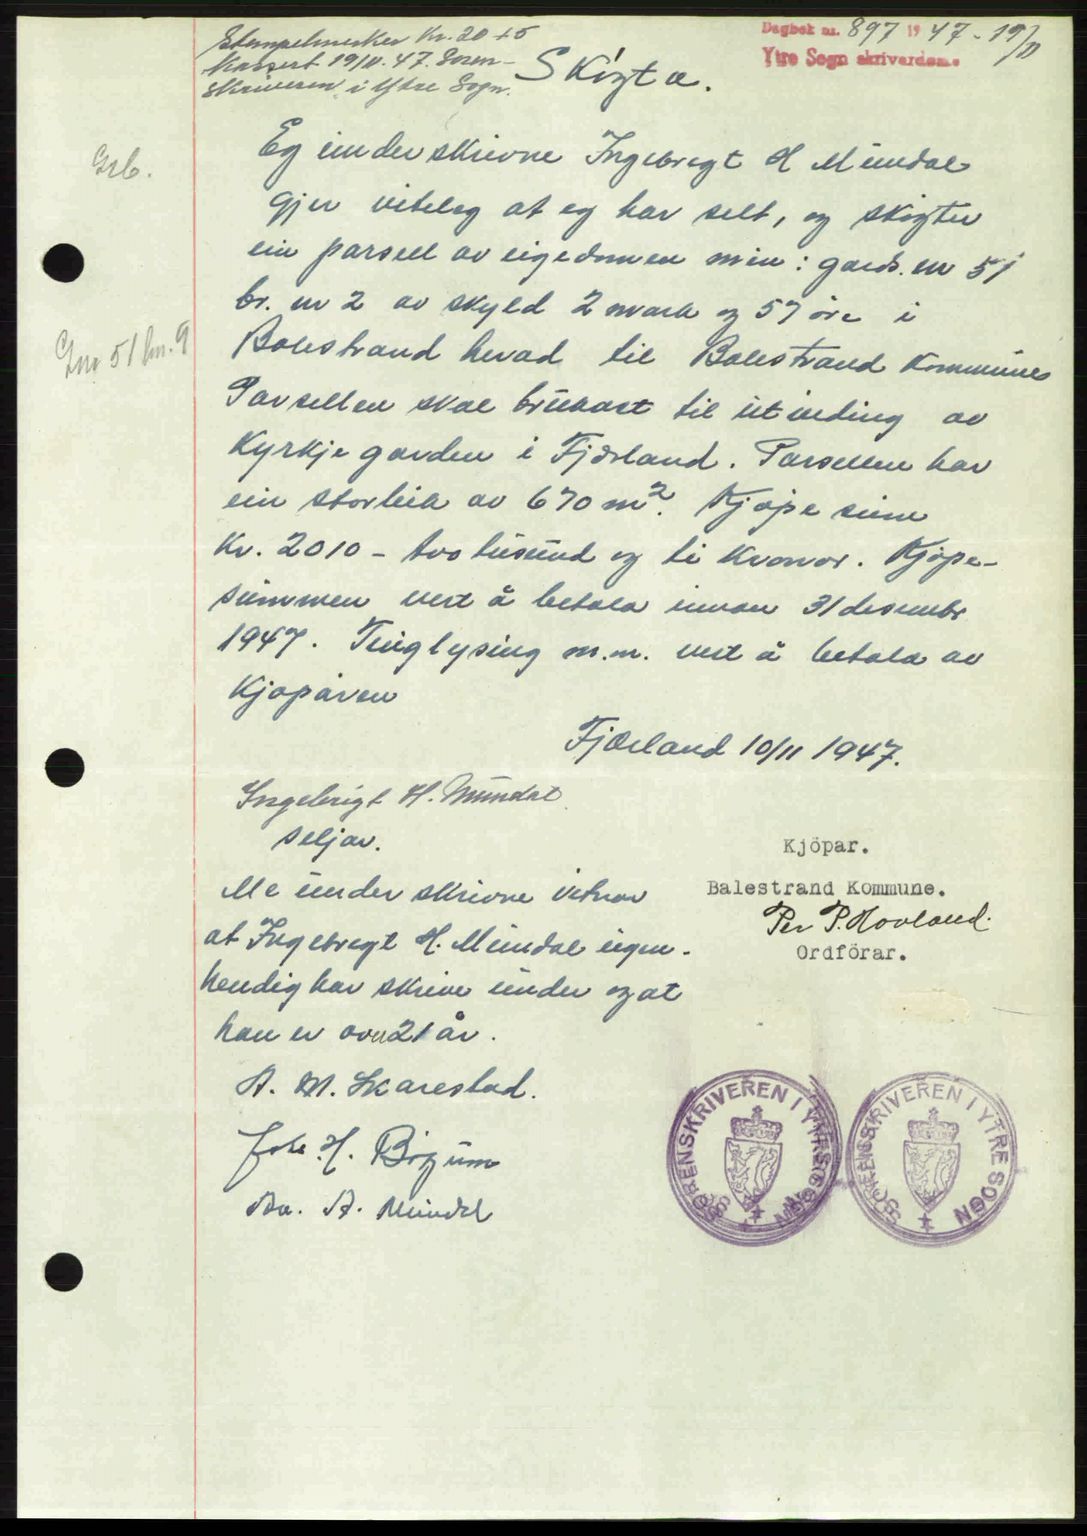 Stempelmerker kr. 20 + 5
Kassert 19/11. 47. Soren-
skriveren i Ytre Sogn.
Dagbok nr. 897 1947 - 19/11
Ytre Sogn skriverdøme
Skøyta.
Grb.
Eg underskrivne Ingebregt H Mundal
gjer viteleg at eg har selt, og skøyter
ein parsell av eigedomen min: gards. nr 51
br. nr 2 av skyld 2 mark og 57 øre i
Gnr 51 bnr. 9
Balestrand herad til Balestrand Kommune
Parsellen skal brukast til utviding av
Kyrkjegarden i Fjærland. Parsellen har
ein storleik av 670 m². Kjøpesum
Kr. 2010 - totusund og ti Kronor. Kjøpe-
summen vert å betala innan 31 desembr
1947. Tinglysing m.m. vert å betala av
Kjøparen
Fjærland 10/11 1947.
Ingebrigt H. Mundal
seljar.
Kjöpar.
Me underskrivne vitnar
Balestrand Kommune.
Per P. Hovland.
at Ingebregt H. Mundal eigen-
Ordförar.
hendig har skrive under og at
han er over 21 år.
A. M. Skarestad.
Joh. H. Bøyum
A. Mundal
SORENSKRIVEREN I YTRE SOGN
SORENSKRIVEREN I YTRE SOGN